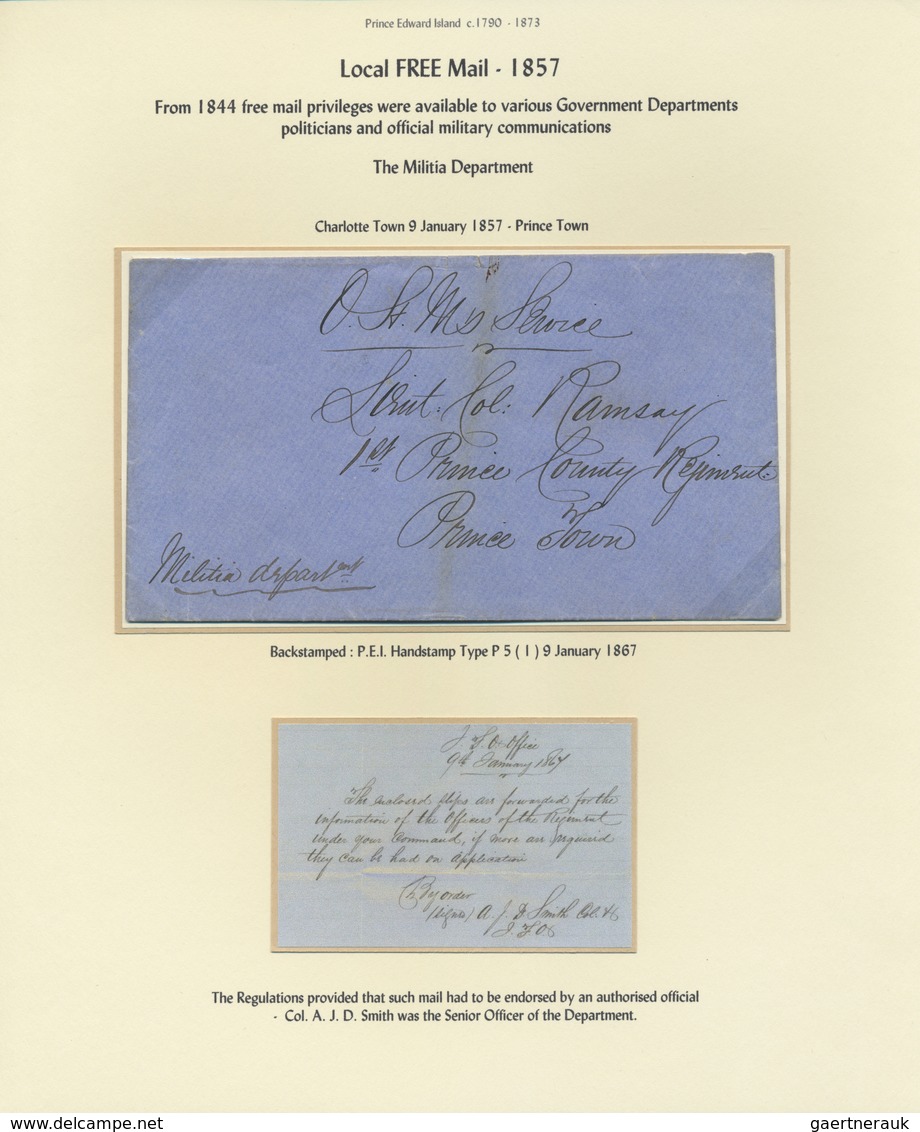 Prince Edward Island c.1790 - 1873
Local FREE Mail - 1857
From 1844 free mail privileges were available to various Government Departments
politicians and official military communications
The Militia Department
Charlotte Town 9 January 1857 - Prince Town
O. H. M's Service
Lieut. Col: Ramsay
1st Prince County Regiment.
Prince Town
Militia department
Backstamped : P.E.I. Handstamp Type P 5 ( 1 ) 9 January 1867
Office
9th January 1867
The enclosed slips are forwarded for the
information of the Officers of the Regiment
under your Command, if more are required
they can be had on application
By order
(signed) A. J. D Smith Col. &
The Regulations provided that such mail had to be endorsed by an authorised official
- Col. A. J. D. Smith was the Senior Officer of the Department.
www.delcampe.net
gaertnerauk